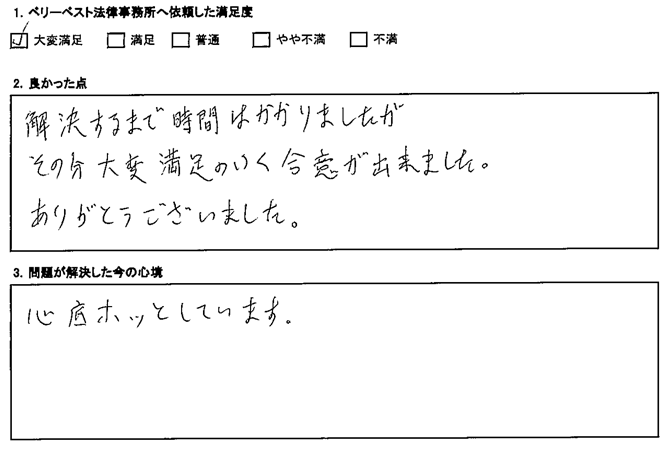 1. ベリーベスト法律事務所へ依頼した満足度
☑ 大変満足 ☐ 満足 ☐ 普通 ☐ やや不満 ☐ 不満
2. 良かった点
解決するまで時間はかかりましたが
その分大変満足のいく合意が出来ました。
ありがとうございました。
3. 問題が解決した今の心境
心底ホッとしています。